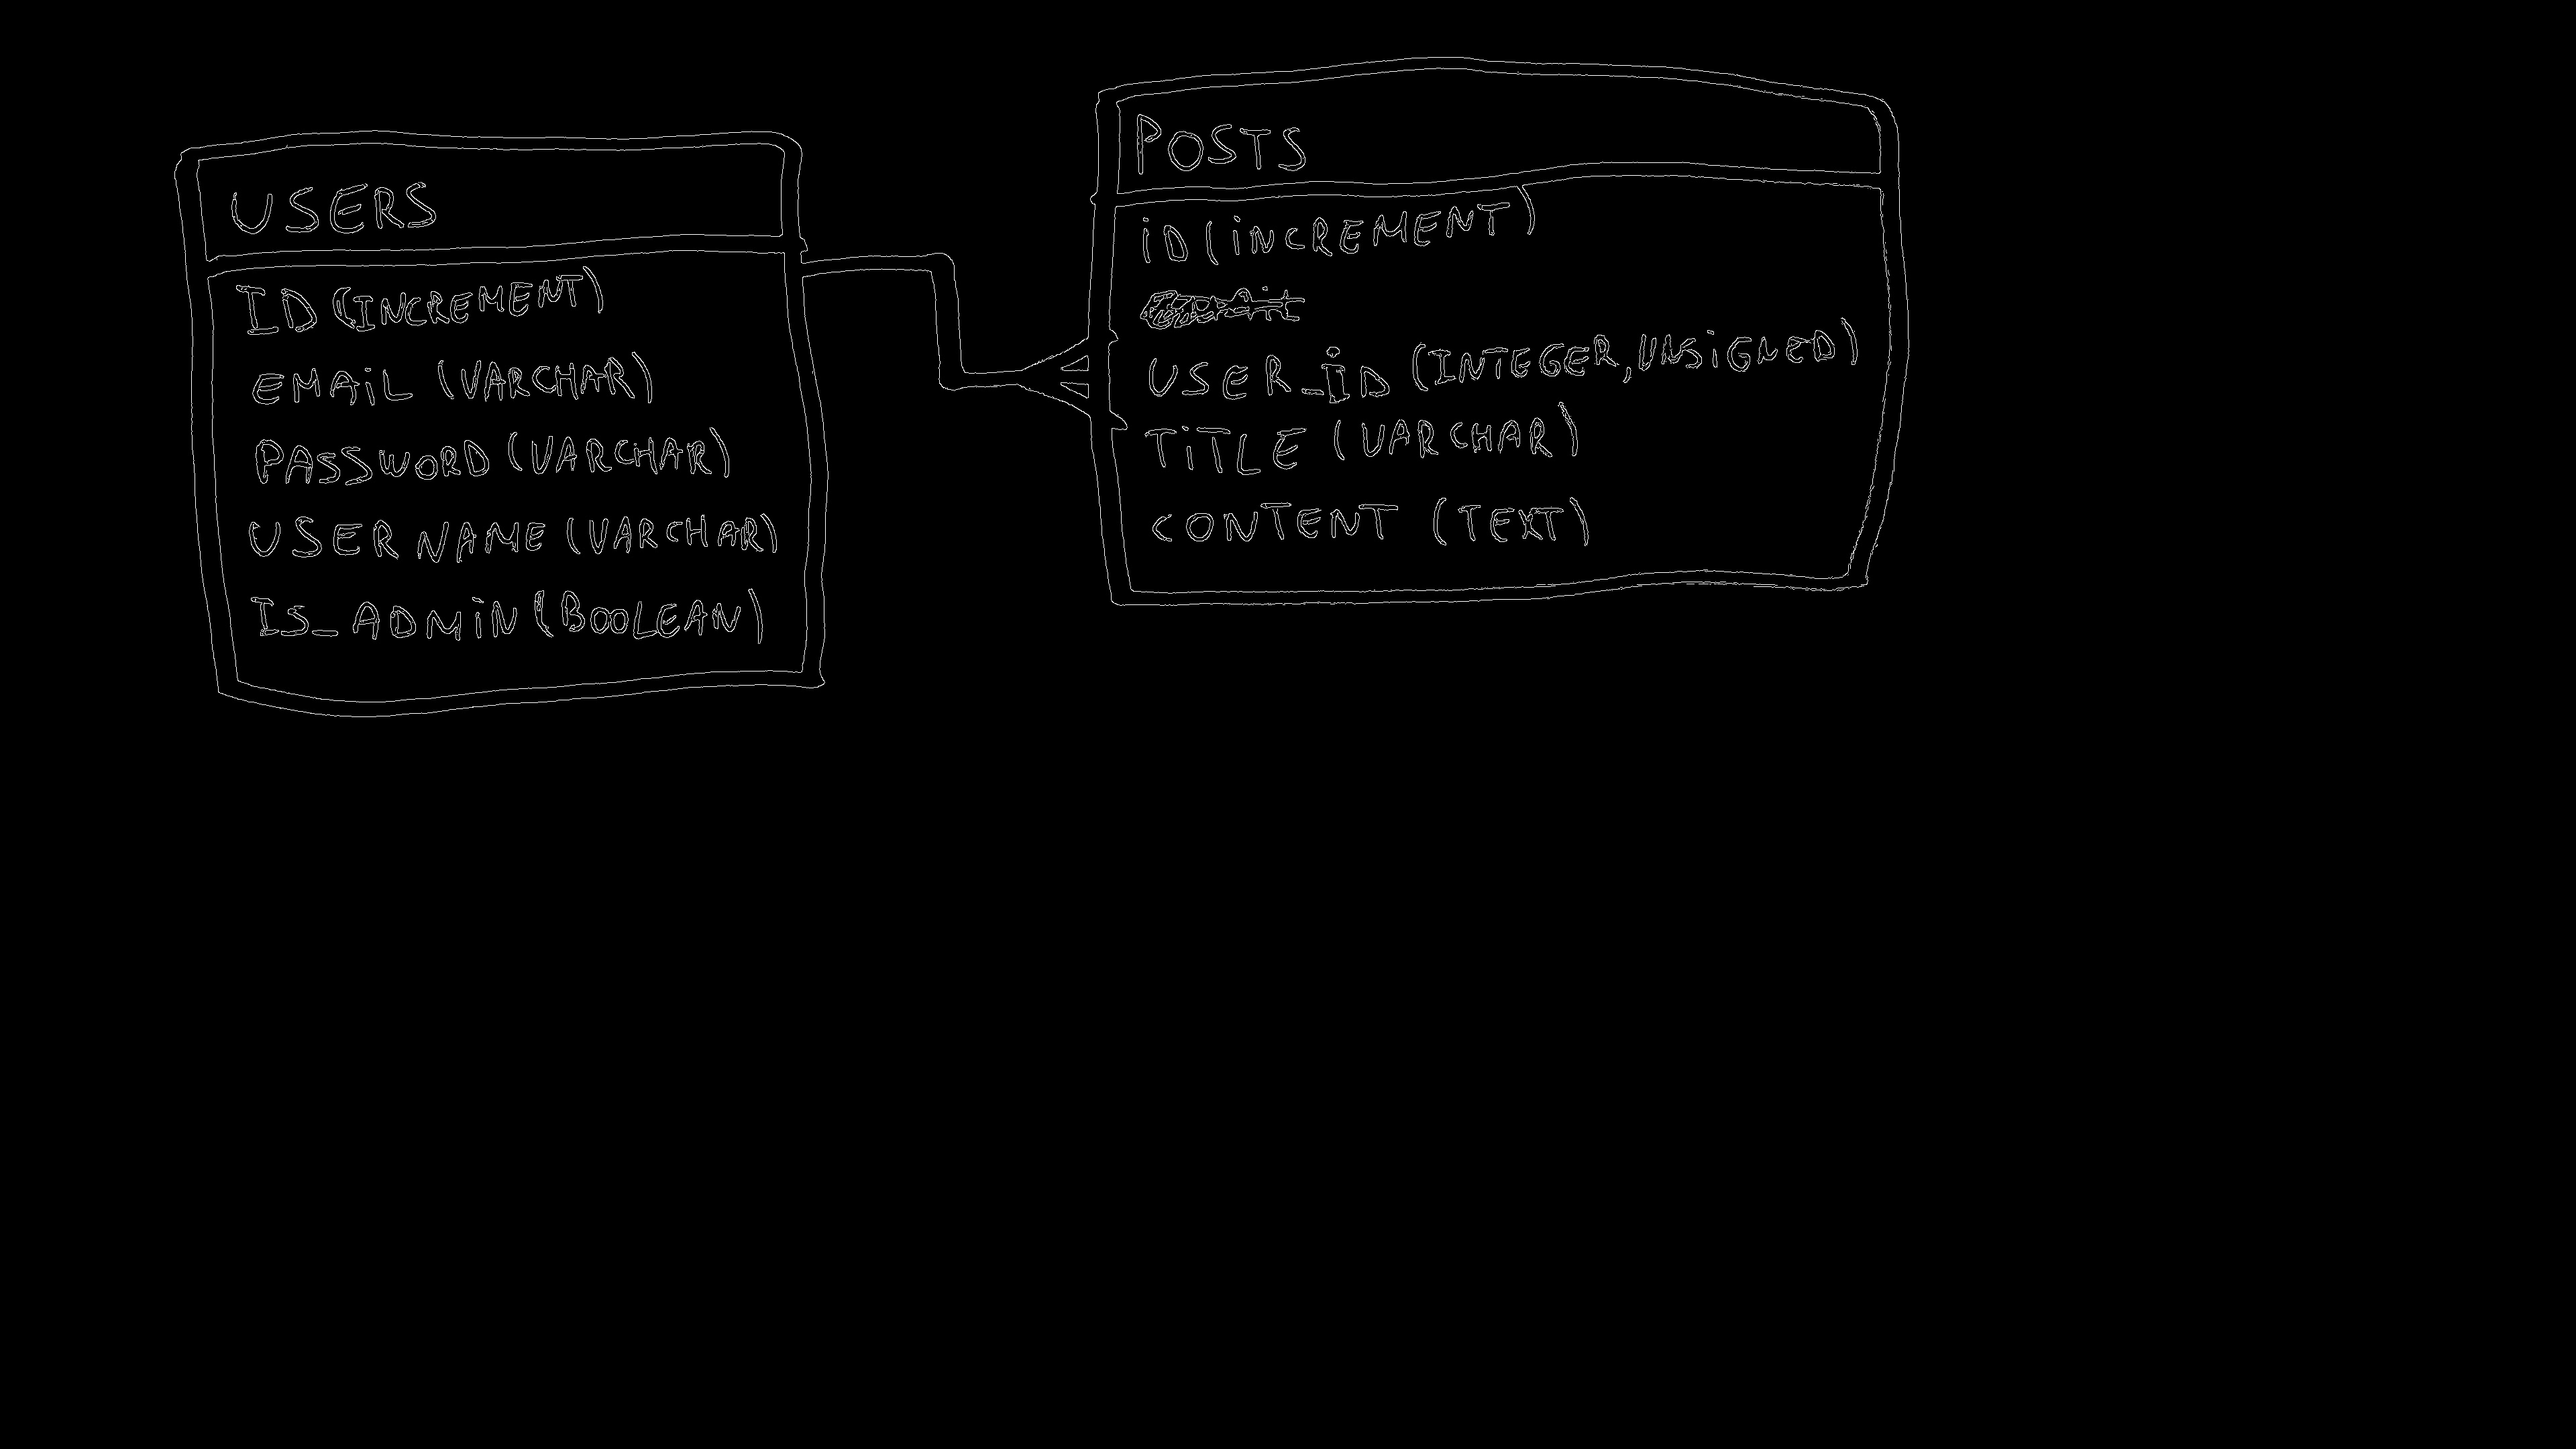 USERS
ID (INCREMENT)
EMAiL (VARCHAR)
PASSWORD (VARCHAR)
USER NAME (VARCHAR)
IS_ADMiN (BOOLEAN)
POSTS
iD (iNCREMENT)
USER_iD (INTEGER, UNSiGNED)
TiTLE (VARCHAR)
CONTENT (TEXT)